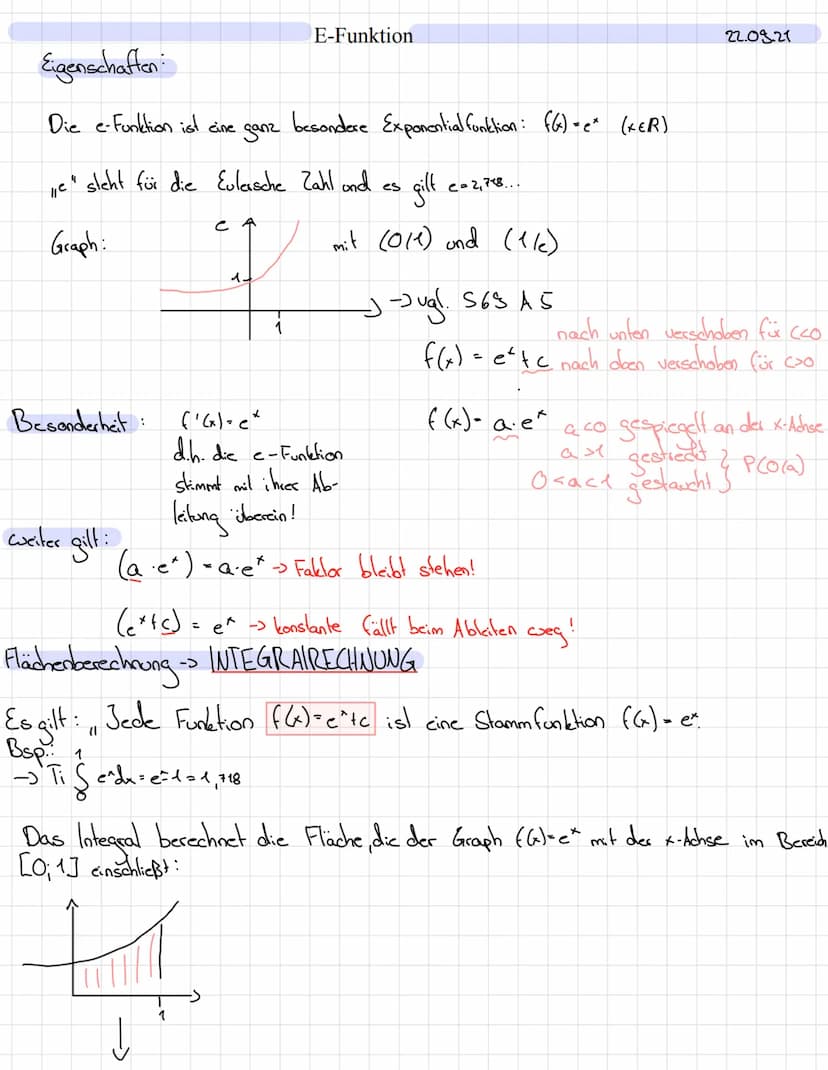 E-Funktion 22.09.21
Eigenschaften:
Die e-Funktion ist eine ganz besondere Exponentialfunktion: f(x)=eˣ (x∈R)
„e" steht für die Eulersche Zahl und es gilt e=2,718...
Graph:
e
1
1
mit (0/1) und (1/e)
-> vgl. S69 A5
f(x) = eˣ+c
nach unten verschoben für c<0
nach oben verschoben für c>0
f(x)= a·eˣ
a<0 gespiegelt an der x-Achse
a>1 gestreckt } P(0/a)
0<a<1 gestaucht }
Besonderheit: f'(x)=eˣ
d.h. die e-Funktion
stimmt mit ihrer Ab-
leitung überein!
weiter gilt:
(a·eˣ) = a·eˣ -> Faktor bleibt stehen!
(eˣ+c) = eˣ -> konstante fällt beim Ableiten weg!
Flächenberechnung -> INTEGRALRECHNUNG
Es gilt: „Jede Funktion f(x)=eˣ+c ist eine Stammfunktion f(x)=eˣ.
Bsp.:
-> Ti ∫₀¹ eˣdx=e-1=1,718
Das Integral berechnet die Fläche, die der Graph f(x)=eˣ mit der x-Achse im Bereich
[0;1] einschließt:
1